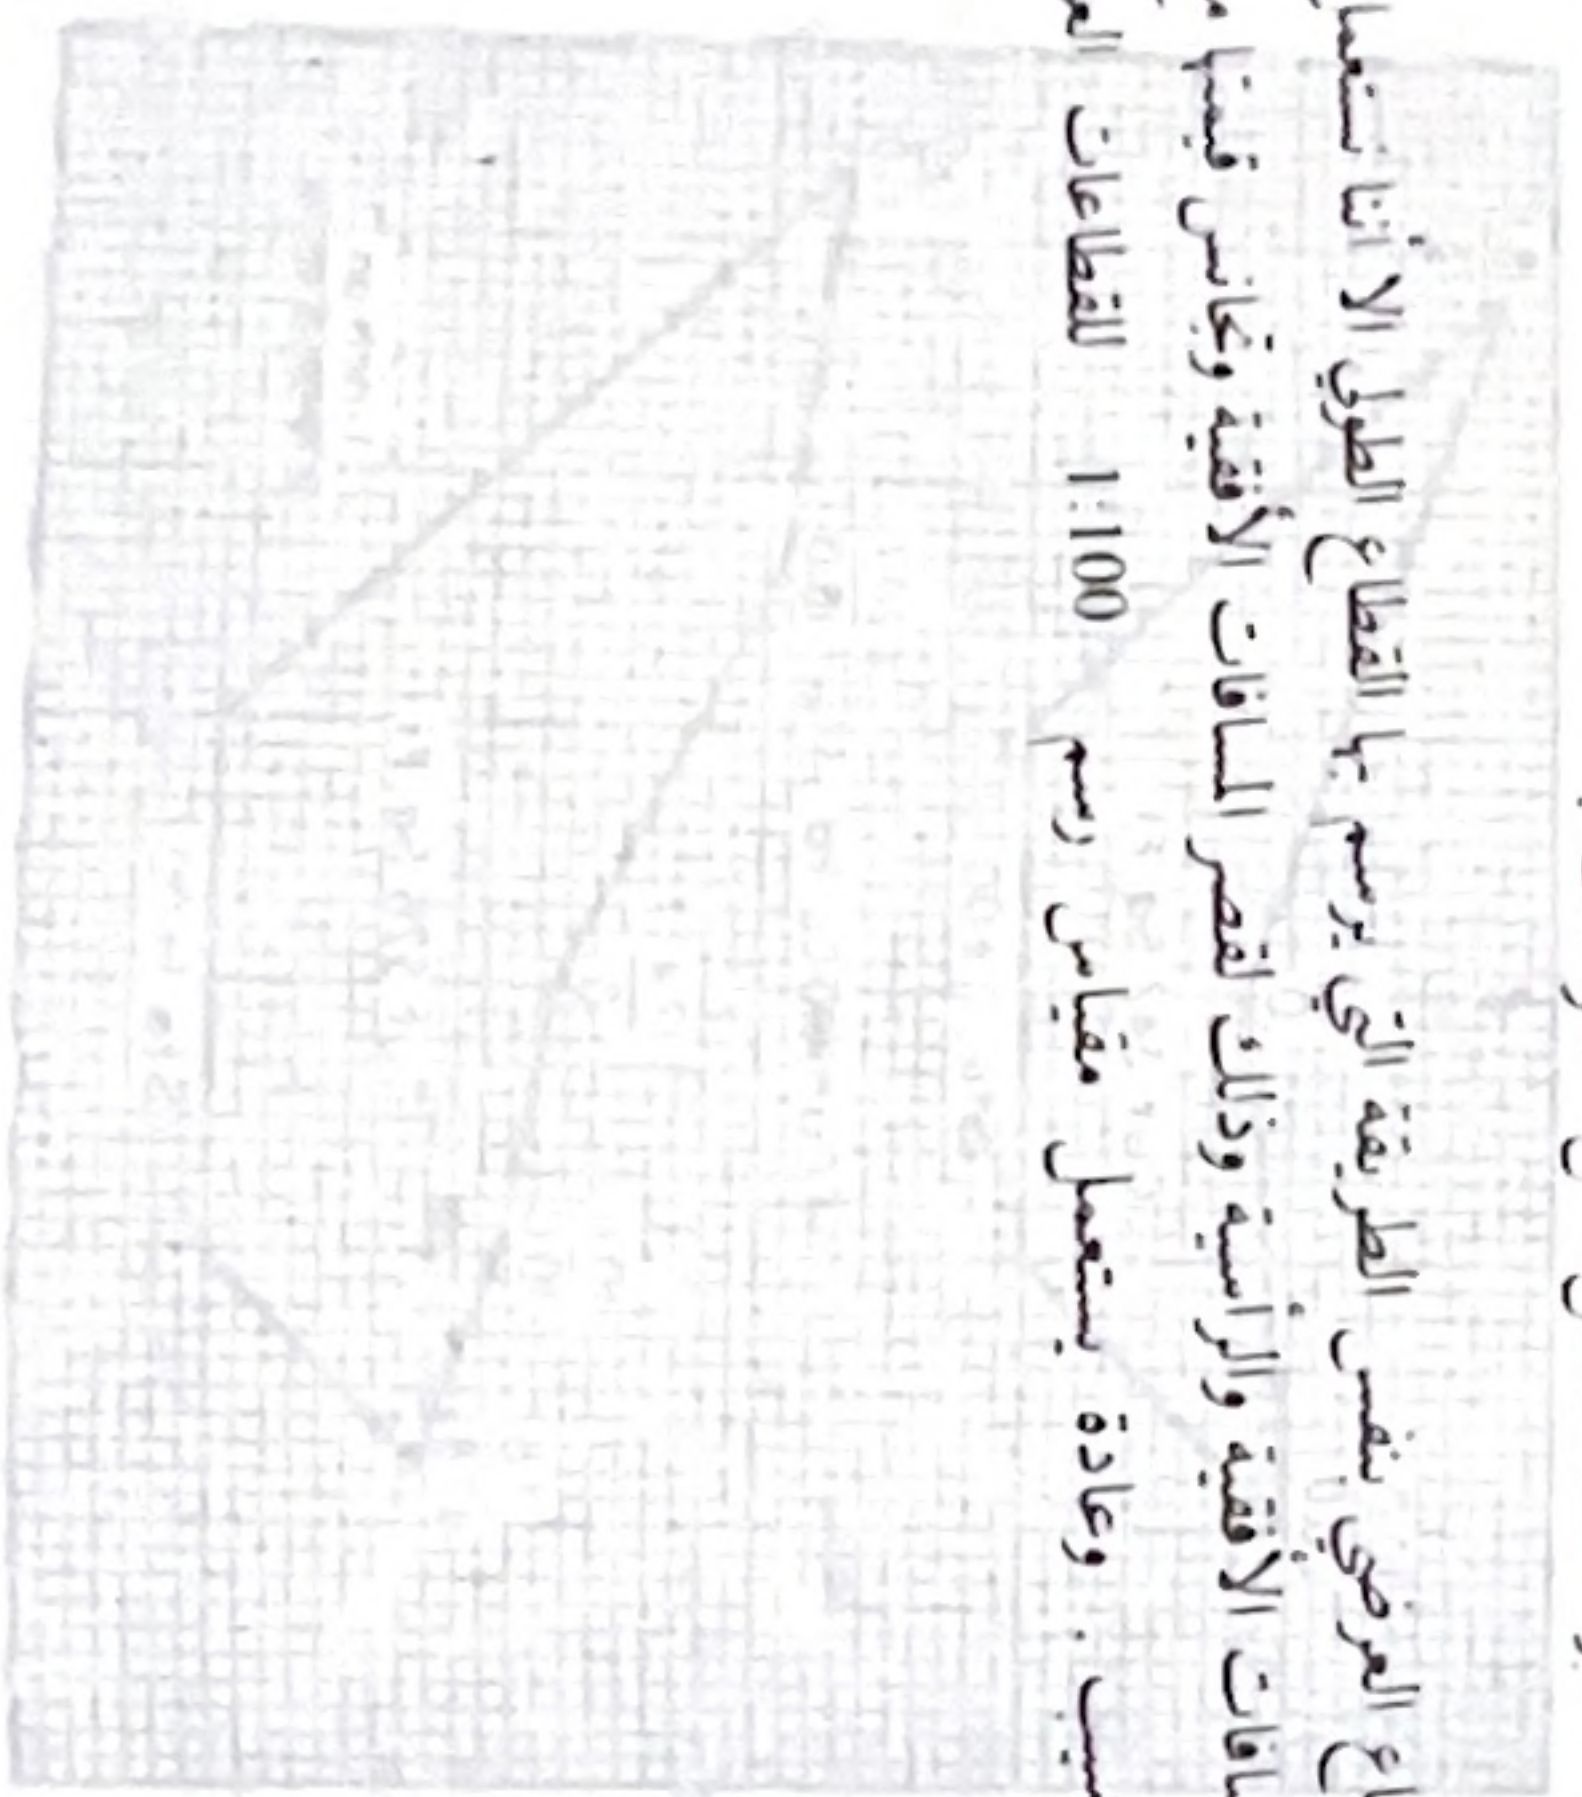 العرضي بنفس الطريقة التي يرسم بها القطاع الطولي الا أننا
الأفقية والرأسية وذلك لقصر المسافات الأفقية وتجانس قيمتها
. وعادة يستعمل مقياس رسم 1:100 للقطاعات